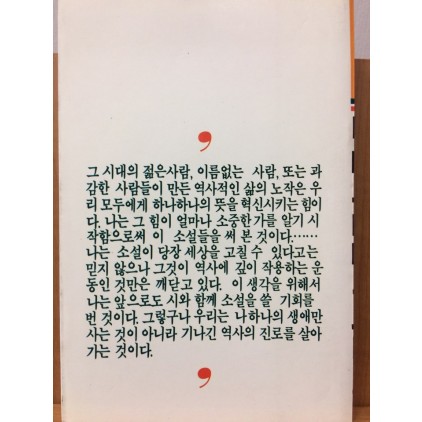 ,
그 시대의 젊은사람, 이름없는 사람, 또는 과
감한 사람들이 만든 역사적인 삶의 노작은 우
리 모두에게 하나하나의 뜻을 혁신시키는 힘이
다. 나는 그 힘이 얼마나 소중한가를 알기 시
작함으로써 이 소설들을 써 본 것이다……
나는 소설이 당장 세상을 고칠 수 있다고는
믿지 않으나 그것이 역사에 깊이 작용하는 운
동인 것만은 깨닫고 있다. 이 생각을 위해서
나는 앞으로도 시와 함께 소설을 쓸 기회를
번 것이다. 그렇구나 우리는 나 하나의 생애만
사는 것이 아니라 기나긴 역사의 진로를 살아
가는 것이다.
,